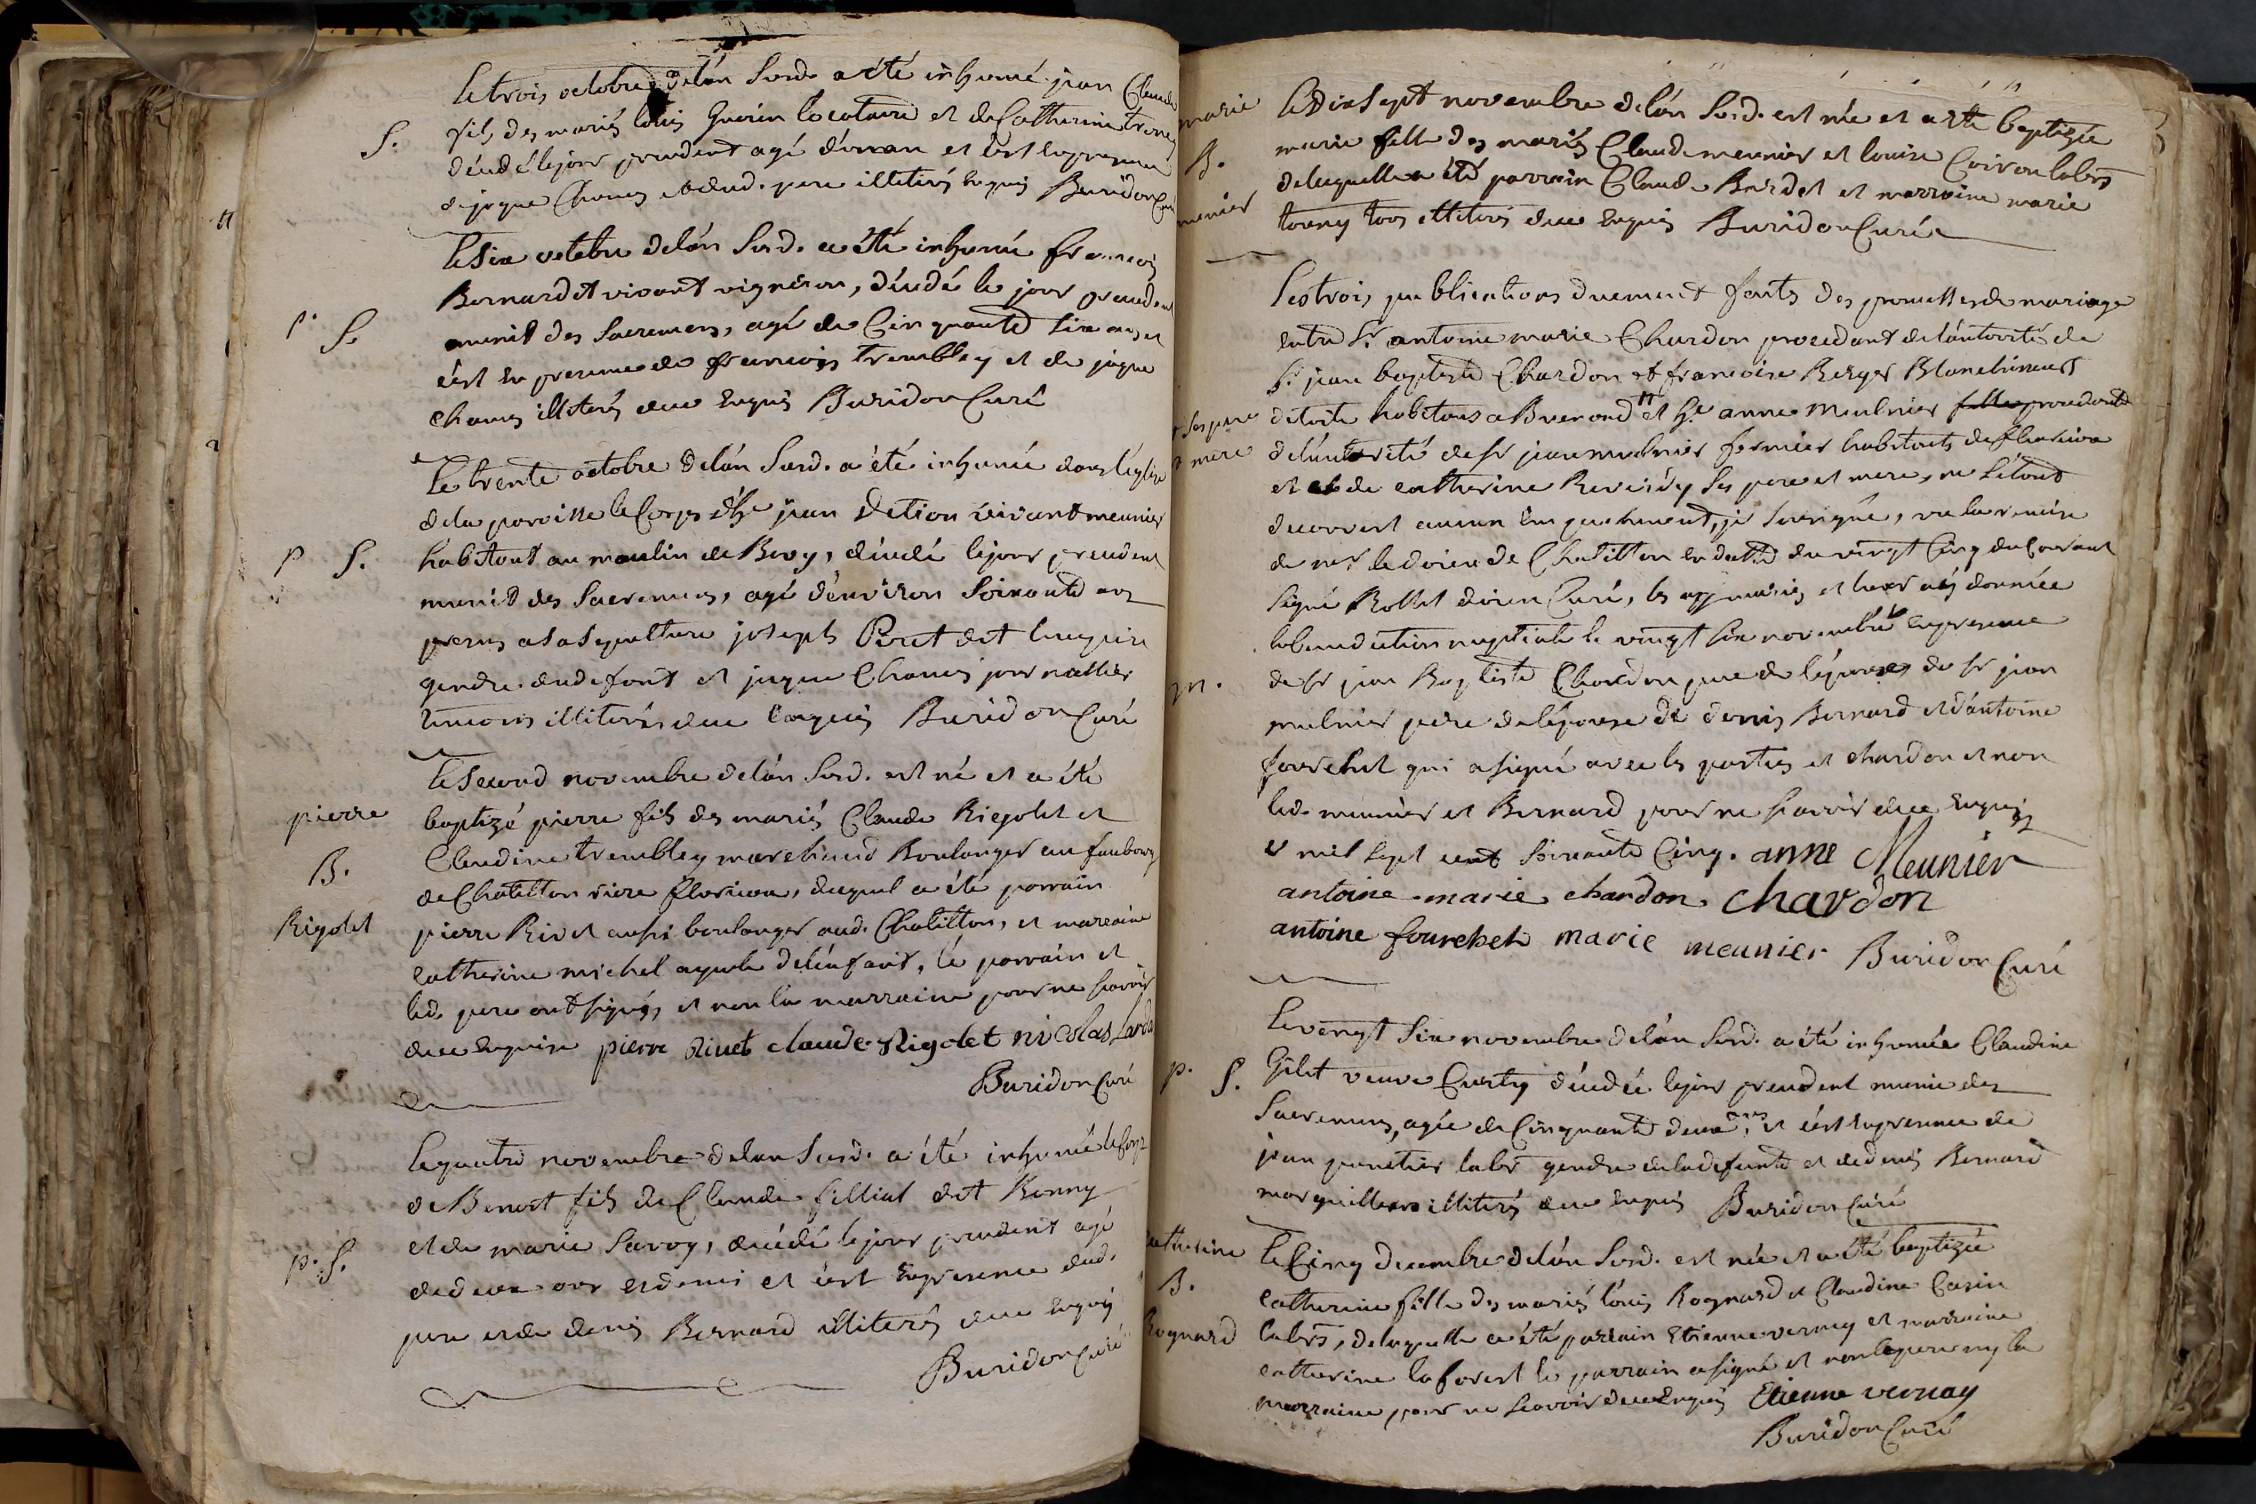 Le trois octobre de lán Susd. a été inhumé jean Claude
fils des mariés loüis Guerin locataire et de Catherine
S.
décédé le jour precedent agé d'un an et c'est en presence
de jaque Chanes et dud. pere illiterés enquis Buridon Curé
Le Six octobre de lán Susd. a été inhumé francois
Bernardet vivant vigneron, décédé le jour precedent
S.
munit des Sacremens, agé de Cinquante Six ans et
c'est en presence de francois trembley et de jaque
Chanes illiterés de ce enquis Buridon Curé
Le trente octobre de lán Susd. a été inhumé dans l'église
de la paroisse le Corps d'he jean Detion vivant meunier
p S.
habitant au moulin de Bevy, décédé le jour precedent
munit des Sacremens, agé d'environ Soixante ans
presens a Sa Sepulture joseph Perret dit
gendre dudefunt et jaque Chanes journallier
temoins illiterés de ce enquis Buridon Curé
Le Second novembre de lán Susd. est né et a été
pierre
baptizé pierre fils des mariés Claude Rigolet et
Claudine trembley marchand Boulanger au faubourg
B.
de Chatillon riere fleurieux, duquel a été parrain
Rigolet
pierre Rivet aussi boulanger aud. Chatillon, et marraine
Catherine michel ayeule de lénfant, le parrain et
led. pere ont signés et non la marraine pour ne scavoir
de ce enquise pierre Rivet claude Rigolet nicolas
Buridon Curé
Le quatre novembre de lan Susd. a été inhumé le corps
de Benoit fils de Claude filliat dit Bonny
et de marie Savoy, décédé le jour precedent agé
p. S.
de deux ans et demi et c'est en presence dud.
pere et de denis Bernard illiterés de ce enquis
Buridon Curé
marie
Le dix Sept novembre de lán Susd. est née et a été baptizée
B.
marie fille des mariés Claude meunier et louise Coiron labrs
de laquelle a été parrain Claude Bardet et marraine marie
menier
tourny tous illiterés de ce enquis Buridon Curé
Les trois publications duement faites des promesses de mariage
entre Sr. antoine marie Chardon procedant de lautorité de
Sr. jean baptiste Chardon et francoise Berger Blanchisseurs
ses pere
de toile habitans a Buenand et he. anne Meulnier fille procedante
et mere
de lautorité de sr jean mulnier fermier habitants de fleurieux
et de catherine Reverdy Ses pere et mere, ne Sétant
decouvert aucun Empechement, je Soussigné, vu la remise
de mr. le doien de Chatillon en datte du vingt Cinq du Courant
Signé Rollet doien Curé, les ay mariés et leur ay donnée
la benediction nuptiale le vingt Six novembre en presence
m.
de Sr jean Baptiste Chardon pere de lépoux, de Sr jean
mulnier pere de lépouse de denis Bernard et d'antoine
fourchet qui a signé avec les parties et chardon et non
led. meunier et Bernard pour ne scavoir de ce enquis
mil sept cent Soixante Cinq. anne Meunier
antoine marie chardon chardon
antoine fourchet marie meunier Buridon Curé
Le vingt Six novembre de lán Susd. a été inhumée Claudine
p. S.
Gilet veuve Curty décédée le jour precedent munie des
Sacremens, agée de Cinquante deux ans, et c'est en presence de
jean panetier labr. gendre de la defunte et de denis Bernard
marguillers illiterés de ce enquis Buridon Curé
catherine
Le Cinq decembre de lán Susd. est née et a été baptizée
B.
Catherine fille des mariés loüis Rognard et Claudine Carin
Rognard
labrs, de laquelle a été parrain Etienne vernay et marraine
catherine laforest le parrain a signé et non le pere ny la
marraine pour ne scavoir de ce enquis Etienne vernay
Buridon Curé